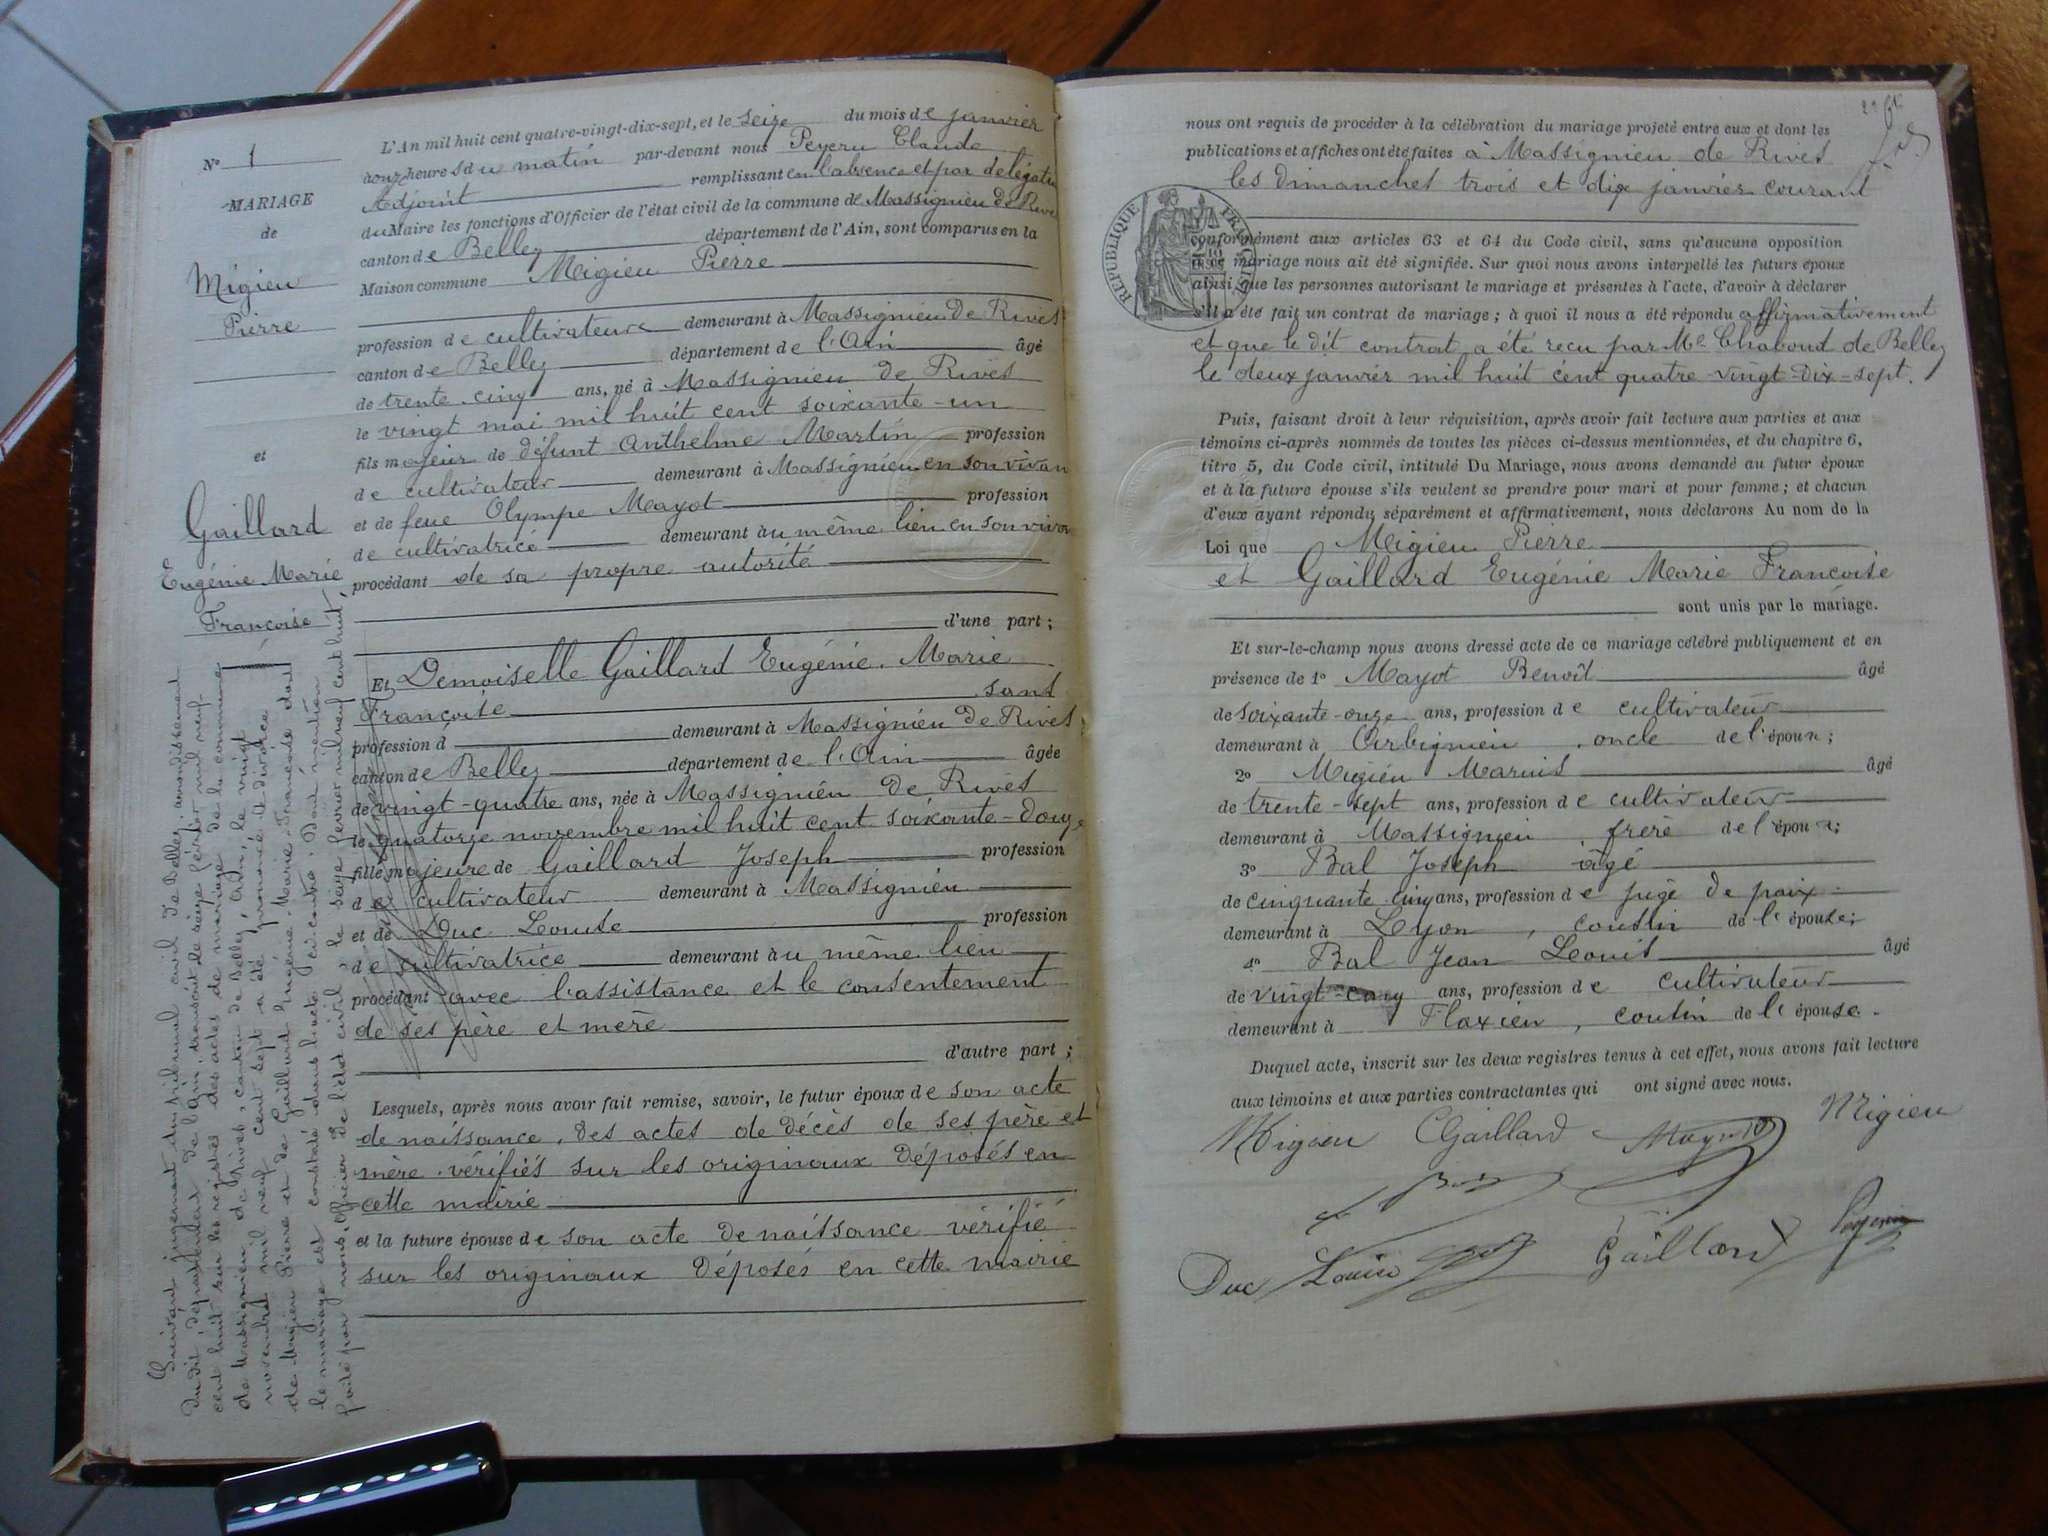 N° 1
MARIAGE
de
Migieu
Pierre
et
Gaillard
Eugénie Marie
Françoise
L'An mil huit cent quatre-vingt-dix-sept, et le seize du mois de janvier
à onze heures du matin par-devant nous Peyeru Claude
Adjoint remplissant en l'absence et par délégation
du Maire les fonctions d'Officier de l'état civil de la commune de Massignieu de Rives
canton de Belley département de l'Ain, sont comparus en la
Maison commune Migieu Pierre
profession de cultivateur demeurant à Massignieu de Rives
canton de Belley département de l'Ain âgé
de trente-cinq ans, né à Massignieu de Rives
le vingt mai mil huit cent soixante-un
fils majeur de défunt Anthelme Martin profession
de cultivateur demeurant à Massignieu en son vivan
et de feue Olympe Mayot profession
de cultivatrice demeurant au même lieu en son viva
procédant de sa propre autorité
d'une part ;
Et Demoiselle Gaillard Eugénie Marie
Françoise sans
profession d demeurant à Massignieu de Rives
canton de Belley département de l'Ain âgée
de vingt-quatre ans, née à Massignieu de Rives
le quatorze novembre mil huit cent soixante-douze
fille majeure de Gaillard Joseph profession
de cultivateur demeurant à Massignieu
et de Duc Louise profession
de cultivatrice demeurant au même lieu
procédant avec l'assistance et le consentement
de ses père et mère
d'autre part ;
Lesquels, après nous avoir fait remise, savoir, le futur époux de son acte
de naissance, des actes de décès de ses père et
mère vérifiés sur les originaux déposés en
cette mairie
et la future épouse de son acte de naissance vérifié
sur les originaux déposés en cette mairie
Suivant jugement du tribunal civil de Belley, arrondissement
dudit, département de l'Ain, transcrit le seize février mil neuf
cent huit sur les registres des actes de mariage de la commune
de Massignieu de Rives, canton de Belley, Ain, le vingt
novembre mil neuf cent sept a été prononcé le divorce
de Migieu Pierre et de Gaillard Eugénie-Marie-Françoise dont
le mariage est constaté dans l'acte ci-contre. Dont mention
faite par nous, officier de l'état civil, le seize février mil neuf cent huit.
nous ont requis de procéder à la célébration du mariage projeté entre eux et dont les
publications et affiches ont été faites à Massignieu de Rives
les dimanches trois et dix janvier courant
RÉPUBLIQUE FRANÇAISE
conformément aux articles 63 et 64 du Code civil, sans qu'aucune opposition
à ce mariage nous ait été signifiée. Sur quoi nous avons interpellé les futurs époux
ainsi que les personnes autorisant le mariage et présentes à l'acte, d'avoir à déclarer
s'il a été fait un contrat de mariage ; à quoi il nous a été répondu affirmativement
et que le dit contrat a été recu par Me Chaboud de Belley
le deux janvier mil huit cent quatre-vingt-dix-sept.
Puis, faisant droit à leur réquisition, après avoir fait lecture aux parties et aux
témoins ci-après nommés de toutes les pièces ci-dessus mentionnées, et du chapitre 6,
titre 5, du Code civil, intitulé Du Mariage, nous avons demandé au futur époux
et à la future épouse s'ils veulent se prendre pour mari et pour femme ; et chacun
d'eux ayant répondu séparément et affirmativement, nous déclarons Au nom de la
Loi que Migieu Pierre
et Gaillard Eugénie Marie Françoise
sont unis par le mariage.
Et sur-le-champ nous avons dressé acte de ce mariage célébré publiquement et en
présence de 1° Mayot Benoît âgé
de soixante-onze ans, profession de cultivateur
demeurant à Arbignieu, oncle de l'époux ;
2° Migieu Marius âgé
de trente-sept ans, profession de cultivateur
demeurant à Massignieu, frère de l'époux ;
3° Bal Joseph âgé
de cinquante cinq ans, profession de juge de paix
demeurant à Lyon, cousin de l'épouse ;
4° Bal Jean Louis âgé
de vingt-cinq ans, profession de cultivateur
demeurant à Flaxieu, cousin de l'épouse.
Duquel acte, inscrit sur les deux registres tenus à cet effet, nous avons fait lecture
aux témoins et aux parties contractantes qui ont signé avec nous.
Migieu Gaillard Mayot Migieu
Duc Louise Gaillard